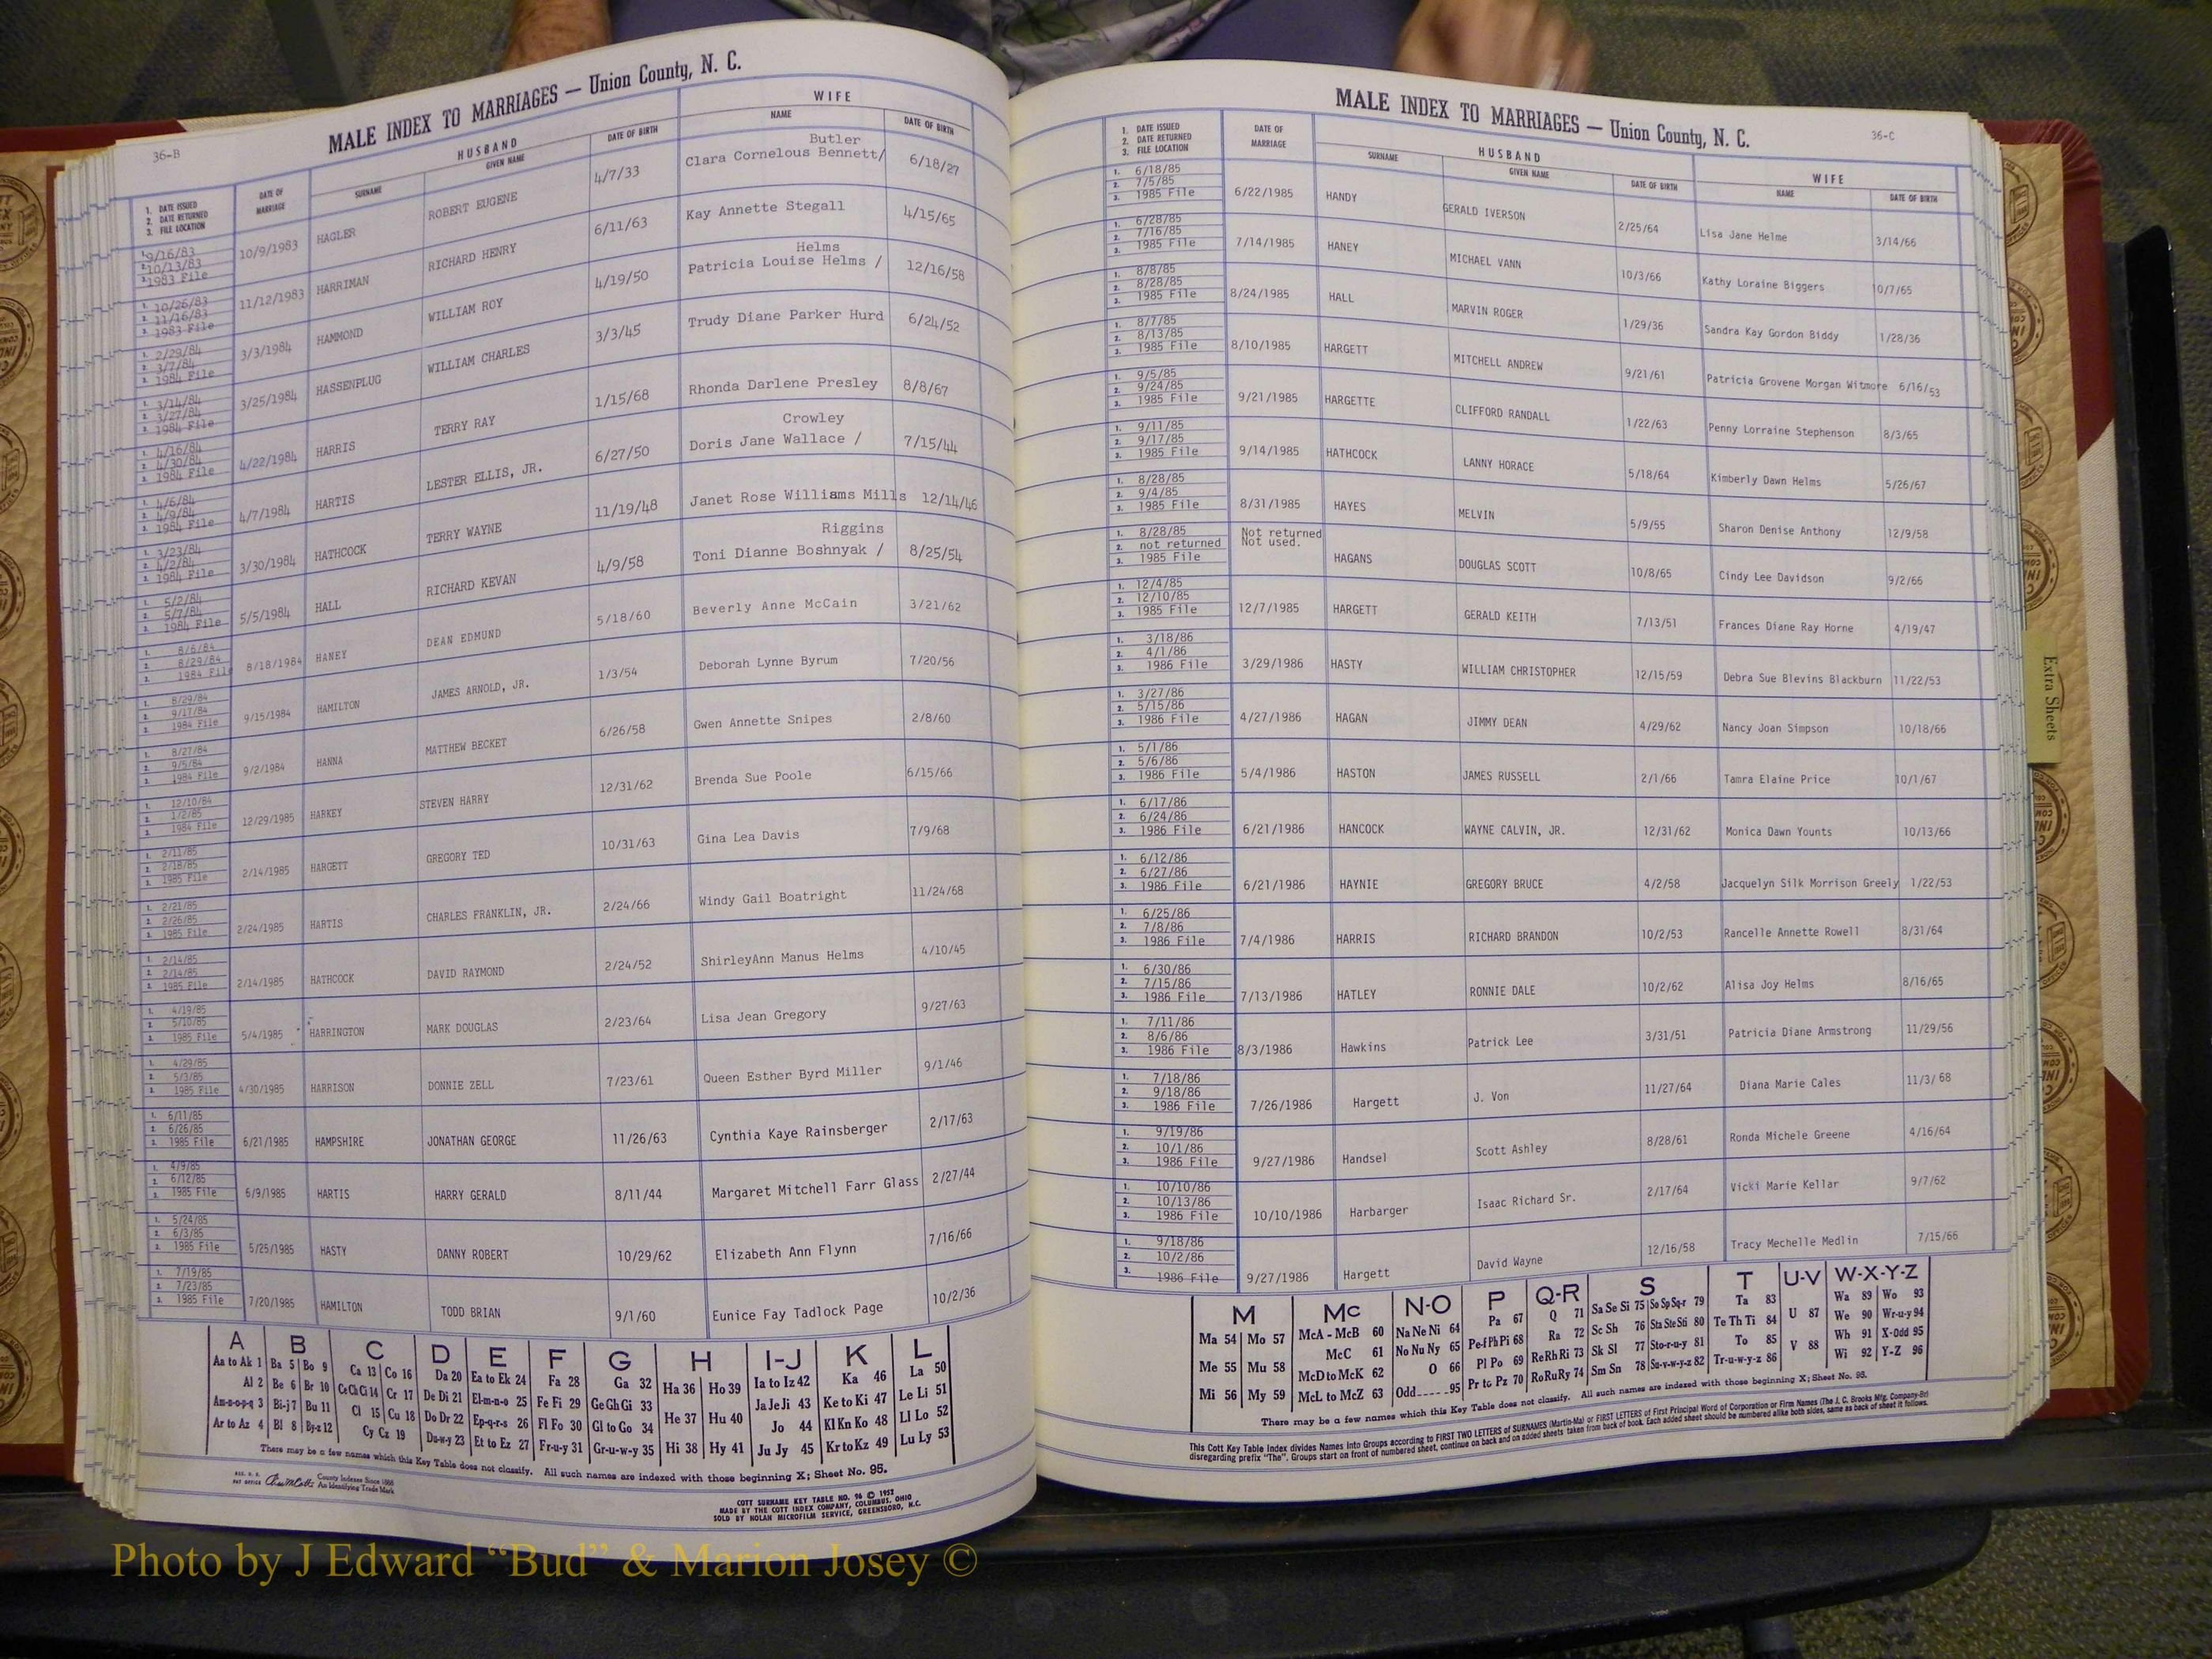 MALE INDEX TO MARRIAGES — Union County, N. C.
36-B
1. DATE ISSUED
2. DATE RETURNED
3. FILE LOCATION
DATE OF MARRIAGE
HUSBAND
SURNAME
GIVEN NAME
DATE OF BIRTH
WIFE
NAME
DATE OF BIRTH
1. 9/16/83 2. 10/13/83 3. 1983 File 10/9/1983 HAGLER ROBERT EUGENE 4/7/33 Clara Cornelous Bennett/ Butler 6/18/27
1. 10/26/83 2. 11/16/83 3. 1983 File 11/12/1983 HARRIMAN RICHARD HENRY 6/11/63 Kay Annette Stegall 4/15/65
1. 2/29/84 2. 3/7/84 3. 1984 File 3/3/1984 HAMMOND WILLIAM ROY 4/19/50 Patricia Louise Helms / Helms 12/16/58
1. 3/14/84 2. 3/27/84 3. 1984 File 3/25/1984 HASSENPLUG WILLIAM CHARLES 3/3/45 Trudy Diane Parker Hurd 6/24/52
1. 4/16/84 2. 4/30/84 3. 1984 File 4/22/1984 HARRIS TERRY RAY 1/15/68 Rhonda Darlene Presley 8/8/67
1. 4/6/84 2. 4/9/84 3. 1984 File 4/7/1984 HARTIS LESTER ELLIS, JR. 6/27/50 Doris Jane Wallace / Crowley 7/15/44
1. 3/23/84 2. 4/2/84 3. 1984 File 3/30/1984 HATHCOCK TERRY WAYNE 11/19/48 Janet Rose Williams Mills 12/14/46
1. 5/2/84 2. 5/7/84 3. 1984 File 5/5/1984 HALL RICHARD KEVAN 4/9/58 Toni Dianne Boshnyak / Riggins 8/25/54
1. 8/6/84 2. 8/29/84 3. 1984 File 8/18/1984 HANEY DEAN EDMUND 5/18/60 Beverly Anne McCain 3/21/62
1. 8/29/84 2. 9/17/84 3. 1984 File 9/15/1984 HAMILTON JAMES ARNOLD, JR. 1/3/54 Deborah Lynne Byrum 7/20/56
1. 8/27/84 2. 9/5/84 3. 1984 File 9/2/1984 HANNA MATTHEW BECKET 6/26/58 Gwen Annette Snipes 2/8/60
1. 12/10/84 2. 1/2/85 3. 1984 File 12/29/1985 HARKEY STEVEN HARRY 12/31/62 Brenda Sue Poole 6/15/66
1. 2/11/85 2. 2/18/85 3. 1985 File 2/14/1985 HARGETT GREGORY TED 10/31/63 Gina Lea Davis 7/9/68
1. 2/21/85 2. 2/26/85 3. 1985 File 2/24/1985 HARTIS CHARLES FRANKLIN, JR. 2/24/66 Windy Gail Boatright 11/24/68
1. 2/14/85 2. 2/14/85 3. 1985 File 2/14/1985 HATHCOCK DAVID RAYMOND 2/24/52 ShirleyAnn Manus Helms 4/10/45
1. 4/19/85 2. 5/10/85 3. 1985 File 5/4/1985 HARRINGTON MARK DOUGLAS 2/23/64 Lisa Jean Gregory 9/27/63
1. 4/29/85 2. 5/3/85 3. 1985 File 4/30/1985 HARRISON DONNIE ZELL 7/23/61 Queen Esther Byrd Miller 9/1/46
1. 6/11/85 2. 6/26/85 3. 1985 File 6/21/1985 HAMPSHIRE JONATHAN GEORGE 11/26/63 Cynthia Kaye Rainsberger 2/17/63
1. 4/9/85 2. 6/12/85 3. 1985 File 6/9/1985 HARTIS HARRY GERALD 8/11/44 Margaret Mitchell Farr Glass 2/27/44
1. 5/24/85 2. 6/3/85 3. 1985 File 5/25/1985 HASTY DANNY ROBERT 10/29/62 Elizabeth Ann Flynn 7/16/66
1. 7/19/85 2. 7/23/85 3. 1985 File 7/20/1985 HAMILTON TODD BRIAN 9/1/60 Eunice Fay Tadlock Page 10/2/36
A B C D E F G H I-J K L
Aa to Ak 1 Ba 5 Bo 9 Ca 13 Co 16 Da 20 Ea to Ek 24 Fa 28 Ga 32 Ha 36 Ho 39 Ia to Iz 42 Ka 46 La 50
Al 2 Be 6 Br 10 Ce Ch Ci 14 Cr 17 De Di 21 El-m-n-o 25 Fe Fi 29 Ge Gh Gi 33 He 37 Hu 40 Ja Je Ji 43 Ke to Ki 47 Le Li 51
Am-n-o-p-q 3 Bi-j 7 Bu 11 Cl 15 Cu 18 Do Dr 22 Ep-q-r-s 26 Fl Fo 30 Gl to Go 34 Jo 44 Kl Kn Ko 48 Ll Lo 52
Ar to Az 4 Bl 8 By-z 12 Cy Cz 19 Du-w-y 23 Et to Ez 27 Fr-u-y 31 Gr-u-w-y 35 Hi 38 Hy 41 Ju Jy 45 Kr to Kz 49 Lu Ly 53
There may be a few names which this Key Table does not classify. All such names are indexed with those beginning X; Sheet No. 95.
County Indexes Since 1888
An Identifying Trade Mark
COTT SURNAME KEY TABLE NO. 96 © 1952
MADE BY THE COTT INDEX COMPANY, COLUMBUS, OHIO
SOLD BY NOLAN MICROFILM SERVICE, GREENSBORO, N.C.
MALE INDEX TO MARRIAGES — Union County, N. C.
36-C
1. DATE ISSUED
2. DATE RETURNED
3. FILE LOCATION
DATE OF MARRIAGE
HUSBAND
SURNAME
GIVEN NAME
DATE OF BIRTH
WIFE
NAME
DATE OF BIRTH
1. 6/18/85 2. 7/5/85 3. 1985 File 6/22/1985 HANDY GERALD IVERSON 2/25/64 Lisa Jane Helme 3/14/66
1. 6/28/85 2. 7/16/85 3. 1985 File 7/14/1985 HANEY MICHAEL VANN 10/3/66 Kathy Loraine Biggers 10/7/65
1. 8/8/85 2. 8/28/85 3. 1985 File 8/24/1985 HALL MARVIN ROGER 1/29/36 Sandra Kay Gordon Biddy 1/28/36
1. 8/7/85 2. 8/13/85 3. 1985 File 8/10/1985 HARGETT MITCHELL ANDREW 9/21/61 Patricia Grovene Morgan Witmore 6/16/53
1. 9/5/85 2. 9/24/85 3. 1985 File 9/21/1985 HARGETTE CLIFFORD RANDALL 1/22/63 Penny Lorraine Stephenson 8/3/65
1. 9/11/85 2. 9/17/85 3. 1985 File 9/14/1985 HATHCOCK LANNY HORACE 5/18/64 Kimberly Dawn Helms 5/26/67
1. 8/28/85 2. 9/4/85 3. 1985 File 8/31/1985 HAYES MELVIN 5/9/55 Sharon Denise Anthony 12/9/58
1. 8/28/85 2. not returned 3. 1985 File Not returned Not used. HAGANS DOUGLAS SCOTT 10/8/65 Cindy Lee Davidson 9/2/66
1. 12/4/85 2. 12/10/85 3. 1985 File 12/7/1985 HARGETT GERALD KEITH 7/13/51 Frances Diane Ray Horne 4/19/47
1. 3/18/86 2. 4/1/86 3. 1986 File 3/29/1986 HASTY WILLIAM CHRISTOPHER 12/15/59 Debra Sue Blevins Blackburn 11/22/53
1. 3/27/86 2. 5/15/86 3. 1986 File 4/27/1986 HAGAN JIMMY DEAN 4/29/62 Nancy Joan Simpson 10/18/66
1. 5/1/86 2. 5/6/86 3. 1986 File 5/4/1986 HASTON JAMES RUSSELL 2/1/66 Tamra Elaine Price 10/1/67
1. 6/17/86 2. 6/24/86 3. 1986 File 6/21/1986 HANCOCK WAYNE CALVIN, JR. 12/31/62 Monica Dawn Younts 10/13/66
1. 6/12/86 2. 6/27/86 3. 1986 File 6/21/1986 HAYNIE GREGORY BRUCE 4/2/58 Jacquelyn Silk Morrison Greely 1/22/53
1. 6/25/86 2. 7/8/86 3. 1986 File 7/4/1986 HARRIS RICHARD BRANDON 10/2/53 Rancelle Annette Rowell 8/31/64
1. 6/30/86 2. 7/15/86 3. 1986 File 7/13/1986 HATLEY RONNIE DALE 10/2/62 Alisa Joy Helms 8/16/65
1. 7/11/86 2. 8/6/86 3. 1986 File 8/3/1986 Hawkins Patrick Lee 3/31/51 Patricia Diane Armstrong 11/29/56
1. 7/18/86 2. 9/18/86 3. 1986 File 7/26/1986 Hargett J. Von 11/27/64 Diana Marie Cales 11/3/68
1. 9/19/86 2. 10/1/86 3. 1986 File 9/27/1986 Handsel Scott Ashley 8/28/61 Ronda Michele Greene 4/16/64
1. 10/10/86 2. 10/13/86 3. 1986 File 10/10/1986 Harbarger Isaac Richard Sr. 2/17/64 Vicki Marie Kellar 9/7/62
1. 9/18/86 2. 10/2/86 3. 1986 File 9/27/1986 Hargett David Wayne 12/16/58 Tracy Mechelle Medlin 7/15/66
M Mc N-O P Q-R S T U-V W-X-Y-Z
Ma 54 Mo 57 McA - McB 60 Na Ne Ni 64 Pa 67 Q 71 Sa Se Si 75 So Sp Sq-r 79 Ta 83 U 87 Wa 89 Wo 93
McC 61 No Nu Ny 65 Pe-f Ph Pi 68 Ra 72 Sc Sh 76 Sta Ste Sti 80 Te Th Ti 84 We 90 Wr-u-y 94
Me 55 Mu 58 McD to McK 62 O 66 Pl Po 69 Re Rh Ri 73 Sk Sl 77 Sto-r-u-y 81 To 85 V 88 Wh 91 X-Odd 95
Mi 56 My 59 McL to McZ 63 Odd 95 Pr to Pz 70 Ro Ru Ry 74 Sm Sn 78 Su-v-w-y-z 82 Tr-u-w-y-z 86 Wi 92 Y-Z 96
There may be a few names which this Key Table does not classify. All such names are indexed with those beginning X; Sheet No. 95.
This Cott Key Table Index divides Names into Groups according to FIRST TWO LETTERS of SURNAMES (Martin-Ma) or FIRST LETTERS of First Principal Word of Corporation or Firm Names (The J. C. Brooks Mfg. Company-Br)
disregarding prefix "The". Groups start on front of numbered sheet, continue on back and on added sheets taken from back of book. Each added sheet should be numbered alike both sides, same as back of sheet it follows.
Extra Sheets
Photo by J Edward “Bud” & Marion Josey ©